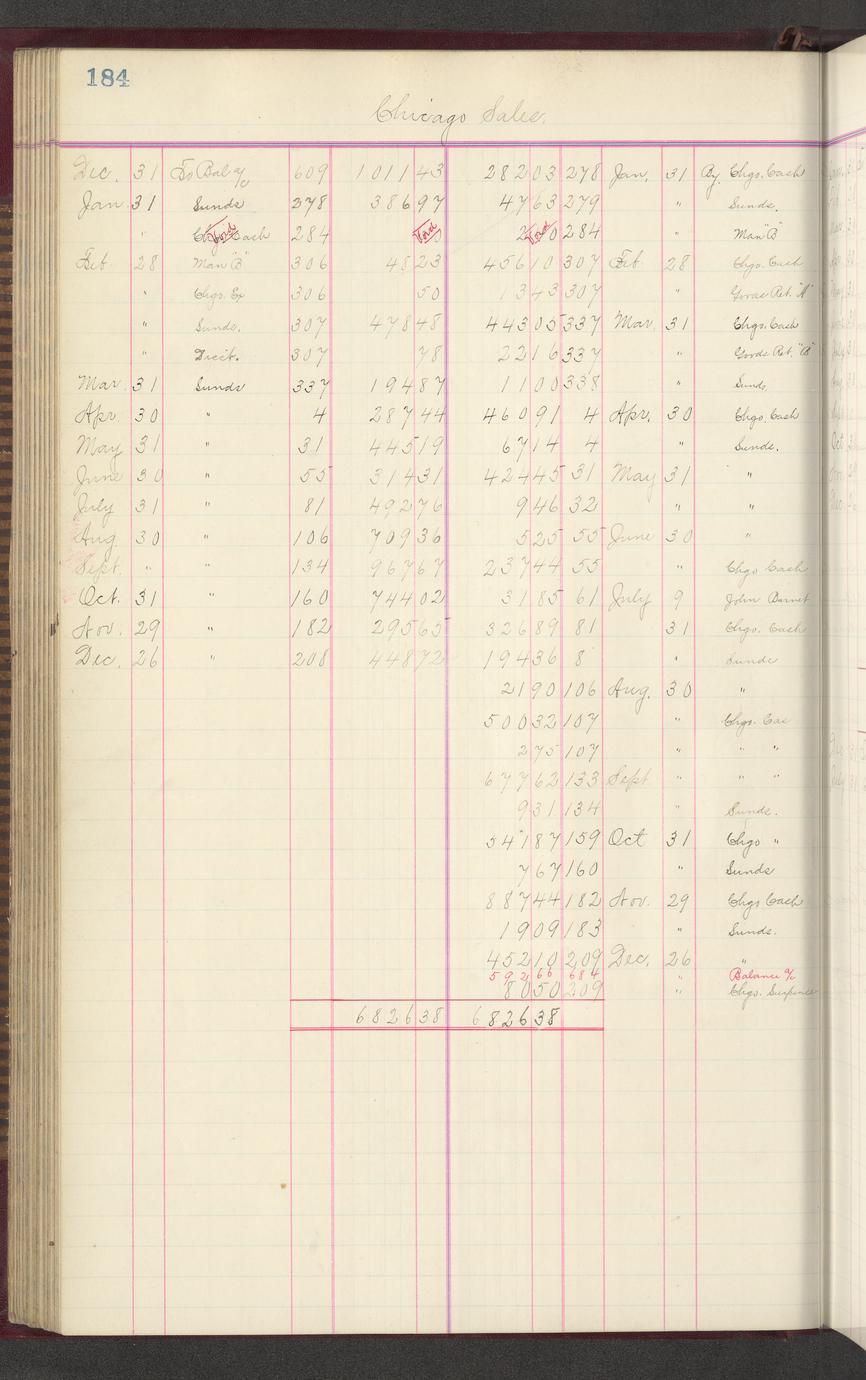 184
Chicago Sales.
Dec. 31 To Bal a/c 609 1011 43 282 03 278 Jan. 31 By Chgs. Cash
Jan 31 Sunds 278 386 97 47 63 279 " Sunds.
" Cash 284 Void Void 284 " Man "B"
Feb 28 Man "B" 306 48 23 456 10 307 Feb 28 Chgs. Cash
" Chgs. Ex 306 50 13 43 307 " Goods Ret. "A"
" Sunds. 307 478 48 443 05 337 Mar. 31 Chgs. Cash
" Disct. 307 78 22 16 337 " Goods Ret. "B"
Mar. 31 Sunds 337 194 87 11 00 338 " Sunds
Apr. 30 " 4 287 44 460 91 4 Apr. 30 Chgs. Cash
May 31 " 31 445 19 67 14 4 " Sunds.
June 30 " 55 314 31 424 45 31 May 31 "
July 31 " 81 492 76 9 46 32 " "
Aug. 30 " 106 709 36 5 25 55 June 30 "
Sept. " " 134 967 67 237 44 55 " Chgs Cash
Oct. 31 " 160 744 02 31 85 61 July 9 John Barnet
Nov. 29 " 182 295 65 326 89 81 31 Chgs. Cash
Dec. 26 " 208 448 72 194 36 8 " Sunds
21 90 106 Aug. 30 "
500 32 107 " Chgs. Cas
2 75 107 " " "
677 62 133 Sept " " "
9 31 134 " Sunds.
541 87 159 Oct 31 Chgs "
7 67 160 " Sunds
887 44 182 Nov. 29 Chgs Cash
19 09 183 " Sunds.
452 10 209 Dec. 26 "
592 66 684 " Balance a/c
80 50 209 " Chgs.
6826 38 6826 38